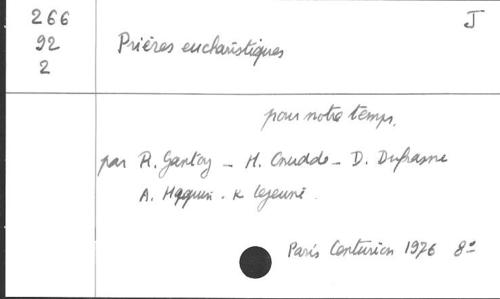 266
J
92
Prières eucharistiques
2
pour notre temps.
par R. Gantoy - H. Cnudde - D. Dufrasne
A. Haquin - K Lejeune.
Paris Centurion 1976 8°